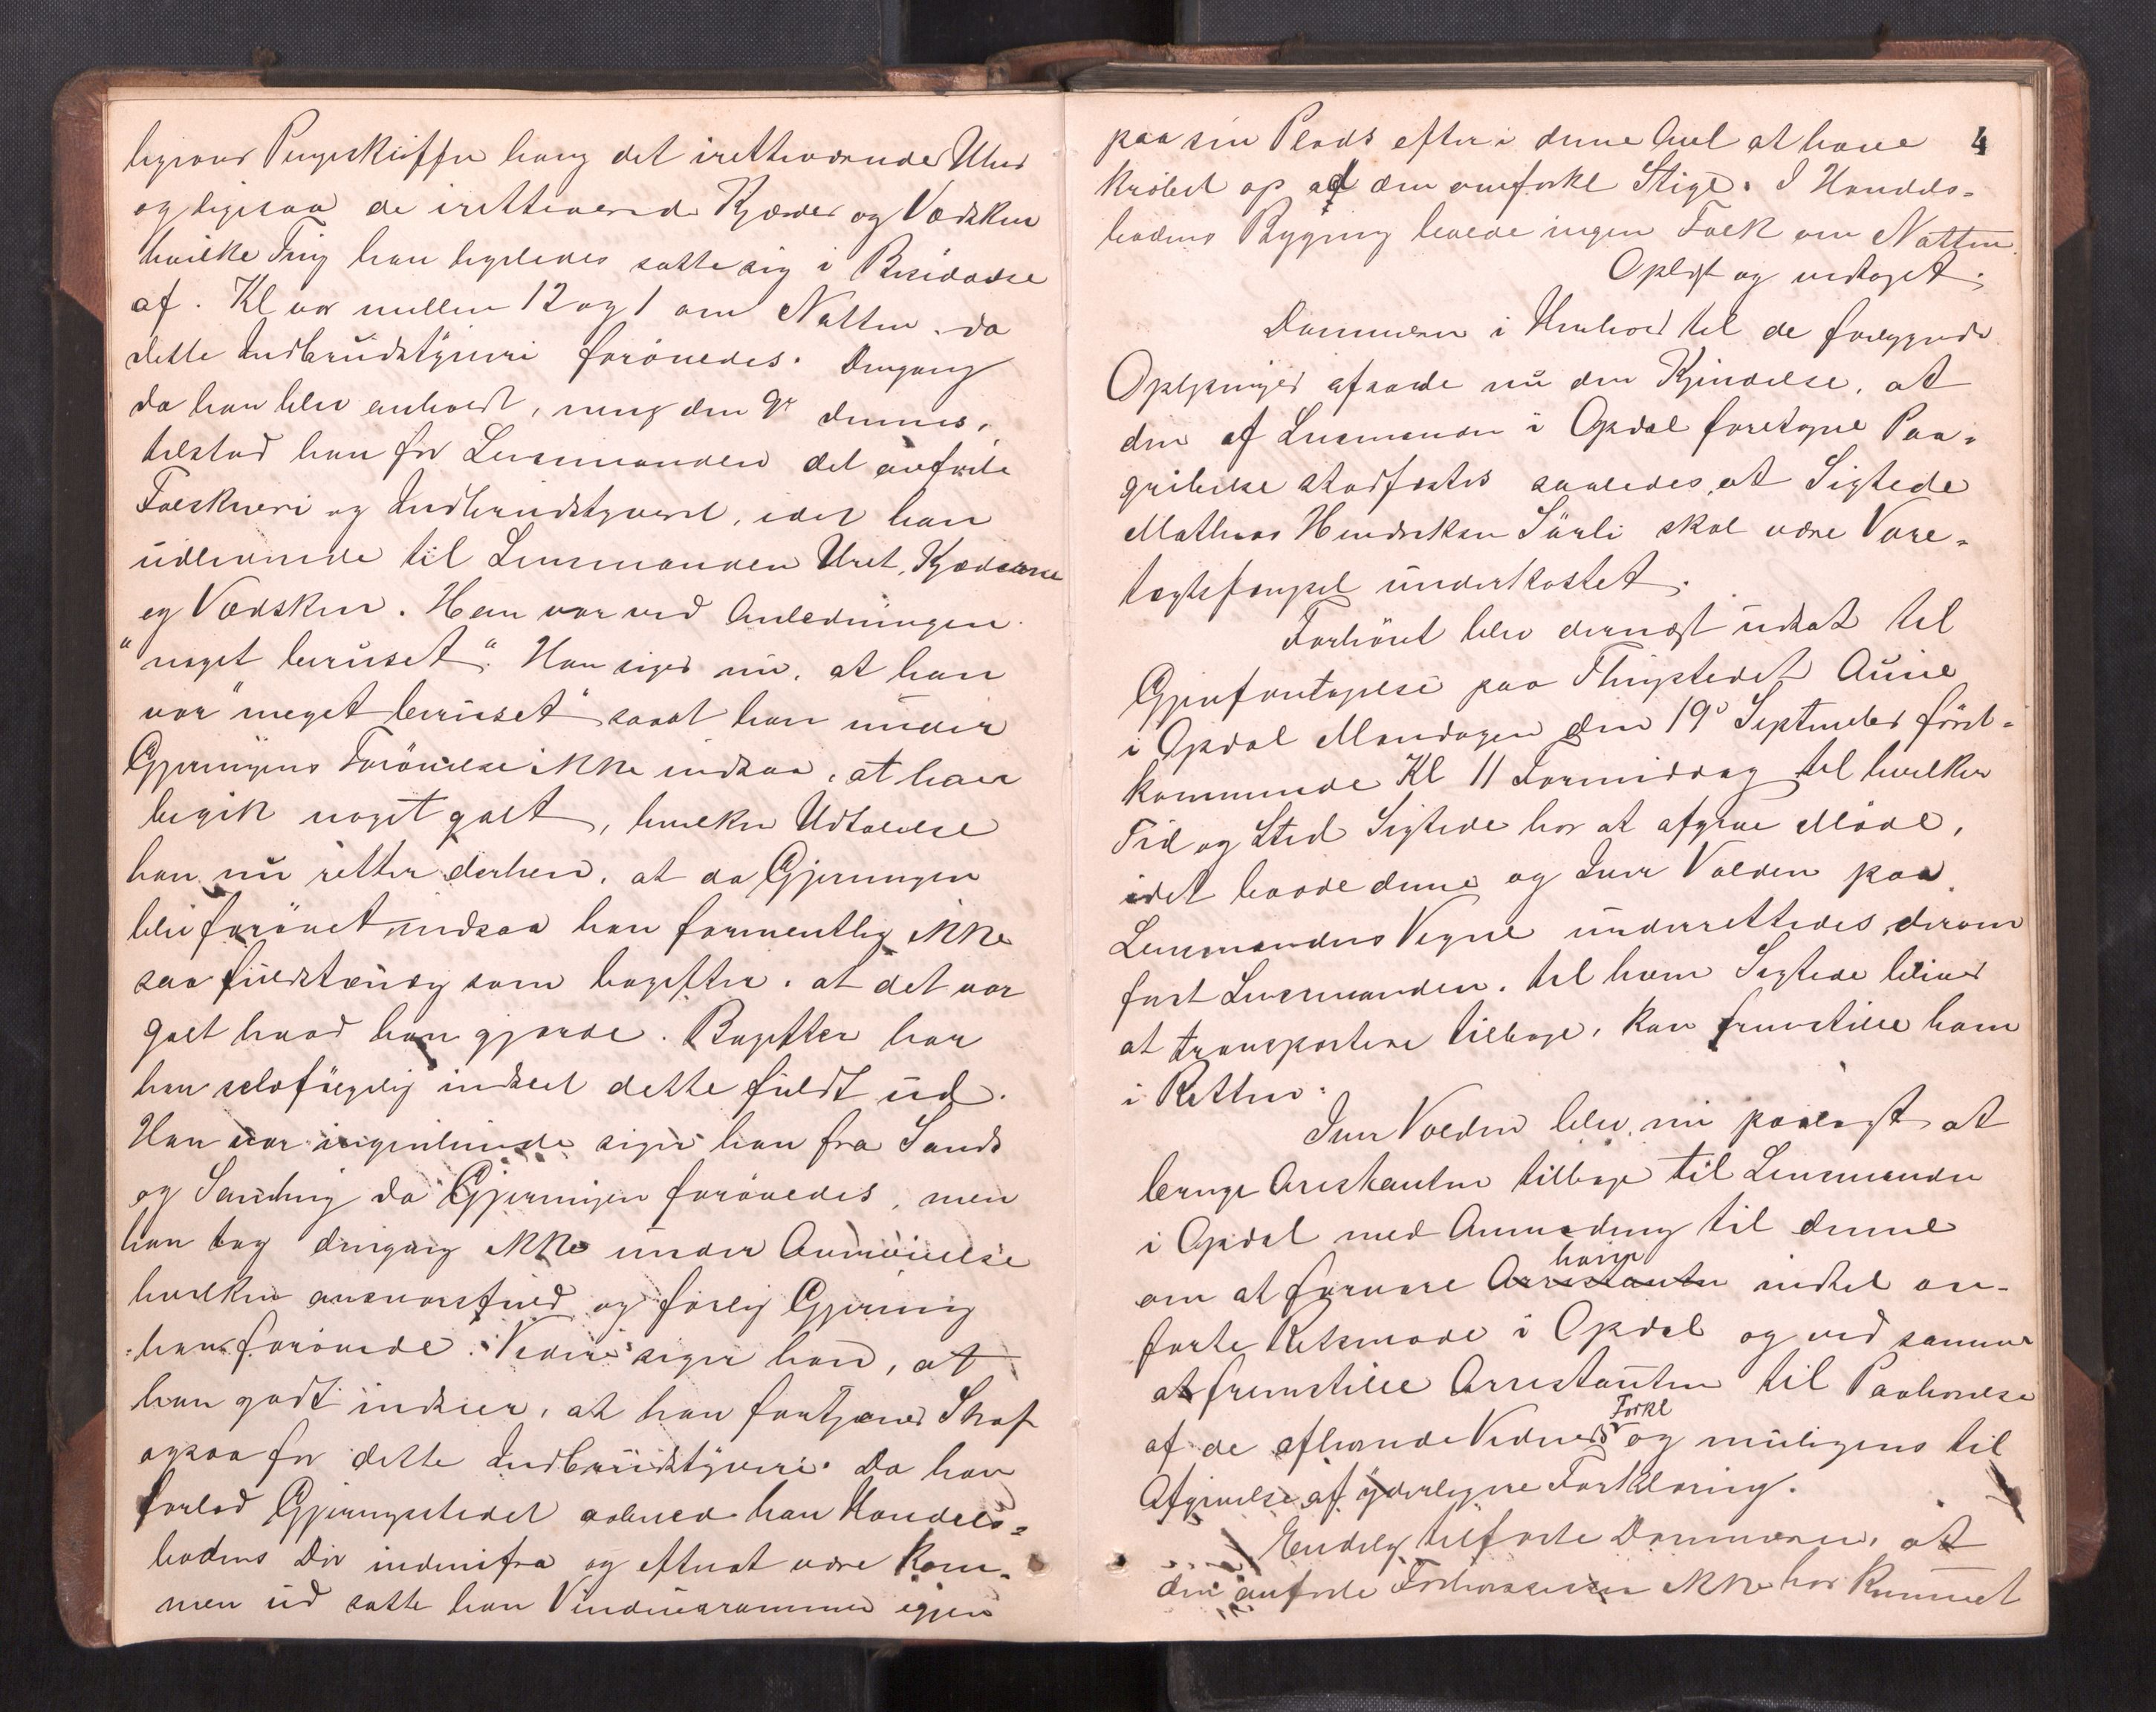 ligesom Pengeskuffen hang det iretteværende Uhr
og ligesaa de iretteværende Kjæder og Vædsken
hvilke Ting han ligeledes satte sig i Besiddelse
af. Kl var mellem 12 og 1 om Natten da
dette Indbrudstyveri forövedes. Dengang
da han blev anholdt, nemlig den 9de dennes,
tilstod han for Lensmanden det anförte
Falskneri og Indbrudstyveri, idet han
udleverede til Lensmanden Uret, Kjæderne
og Vædsken. Han var ved Anledningen
"noget beruset". Han siger nu, at han
var "meget beruset" saaat han under
Gjerningens Forövelse ikke indsaa, at han
begik noget galt, hvilken Udtalelse
han nu retter derhen, at da Gjerningen
blev forövet indsaa han formentlig ikke
saa fuldstændig som bagefter, at det var
galt hvad han gjorde. Bagefter har
han selvfölgelig indseet dette fuldt ud.
Han var ingenlunde siger han fra Sands
og Samling da Gjerningen forövedes, men
han tog dengang ikke under Overveielse
hvilken ansvarsfuld og farlig Gjerning
han forövede. Videre siger han, at
han godt indseer, at han fortjener Straf
ogsaa for dette Indbrudstyveri. Da han
forlod Gjerningsstedet aabned han Handels-
bodens Dör indenifra og efterat være kom-
men ud satte han Vinduesrammen igjen
4
paa sin Plads efter i denne Anl at have
kröbet op ad den omforkl Stige. I Handels-
bodens Bygning boede ingen Folk om Natten.
Oplæst og vedtaget.
Dommeren i Henhold til de foreliggende
Oplysninger afsagde nu den Kjendelse, at
den af Lensmanden i Opdal foretagne Paa-
gribelse stadfæstes saaledes, at Sigtede
Mathias Hendriksen Sörli skal være Vare-
tægtsfængsel underkastet.
Forhöret blev dernæst udsat til
Gjenforetagelse paa Thingstedet Aune
i Opdal Mandagen den 19de September först-
kommende Kl 11 Formiddag til hvilken
Tid og Sted Sigtede har at afgive Möde,
idet baade denne og Iver Volden paa
Lensmandens Vegne underrettedes derom
samt Lensmanden, til hvem Sigtede bliver
at transportere tilbage, kan fremstille ham
i Retten.
Iver Volden blev nu paalagt at
bringe Arrestanten tilbage til Lensmanden
i Opdal med Anmodning til denne
om at forvare Arrestanten ham indtil an-
förte Retsmöde i Opdal og ved samme
at fremstille Arrestanten til Paahörelse
af de afhörende Vidners Forkl og muligens til
Afgivelse af yderligere Forklaring.
Endelig tilförte Dommeren, at
den anförte ikke har kunnet